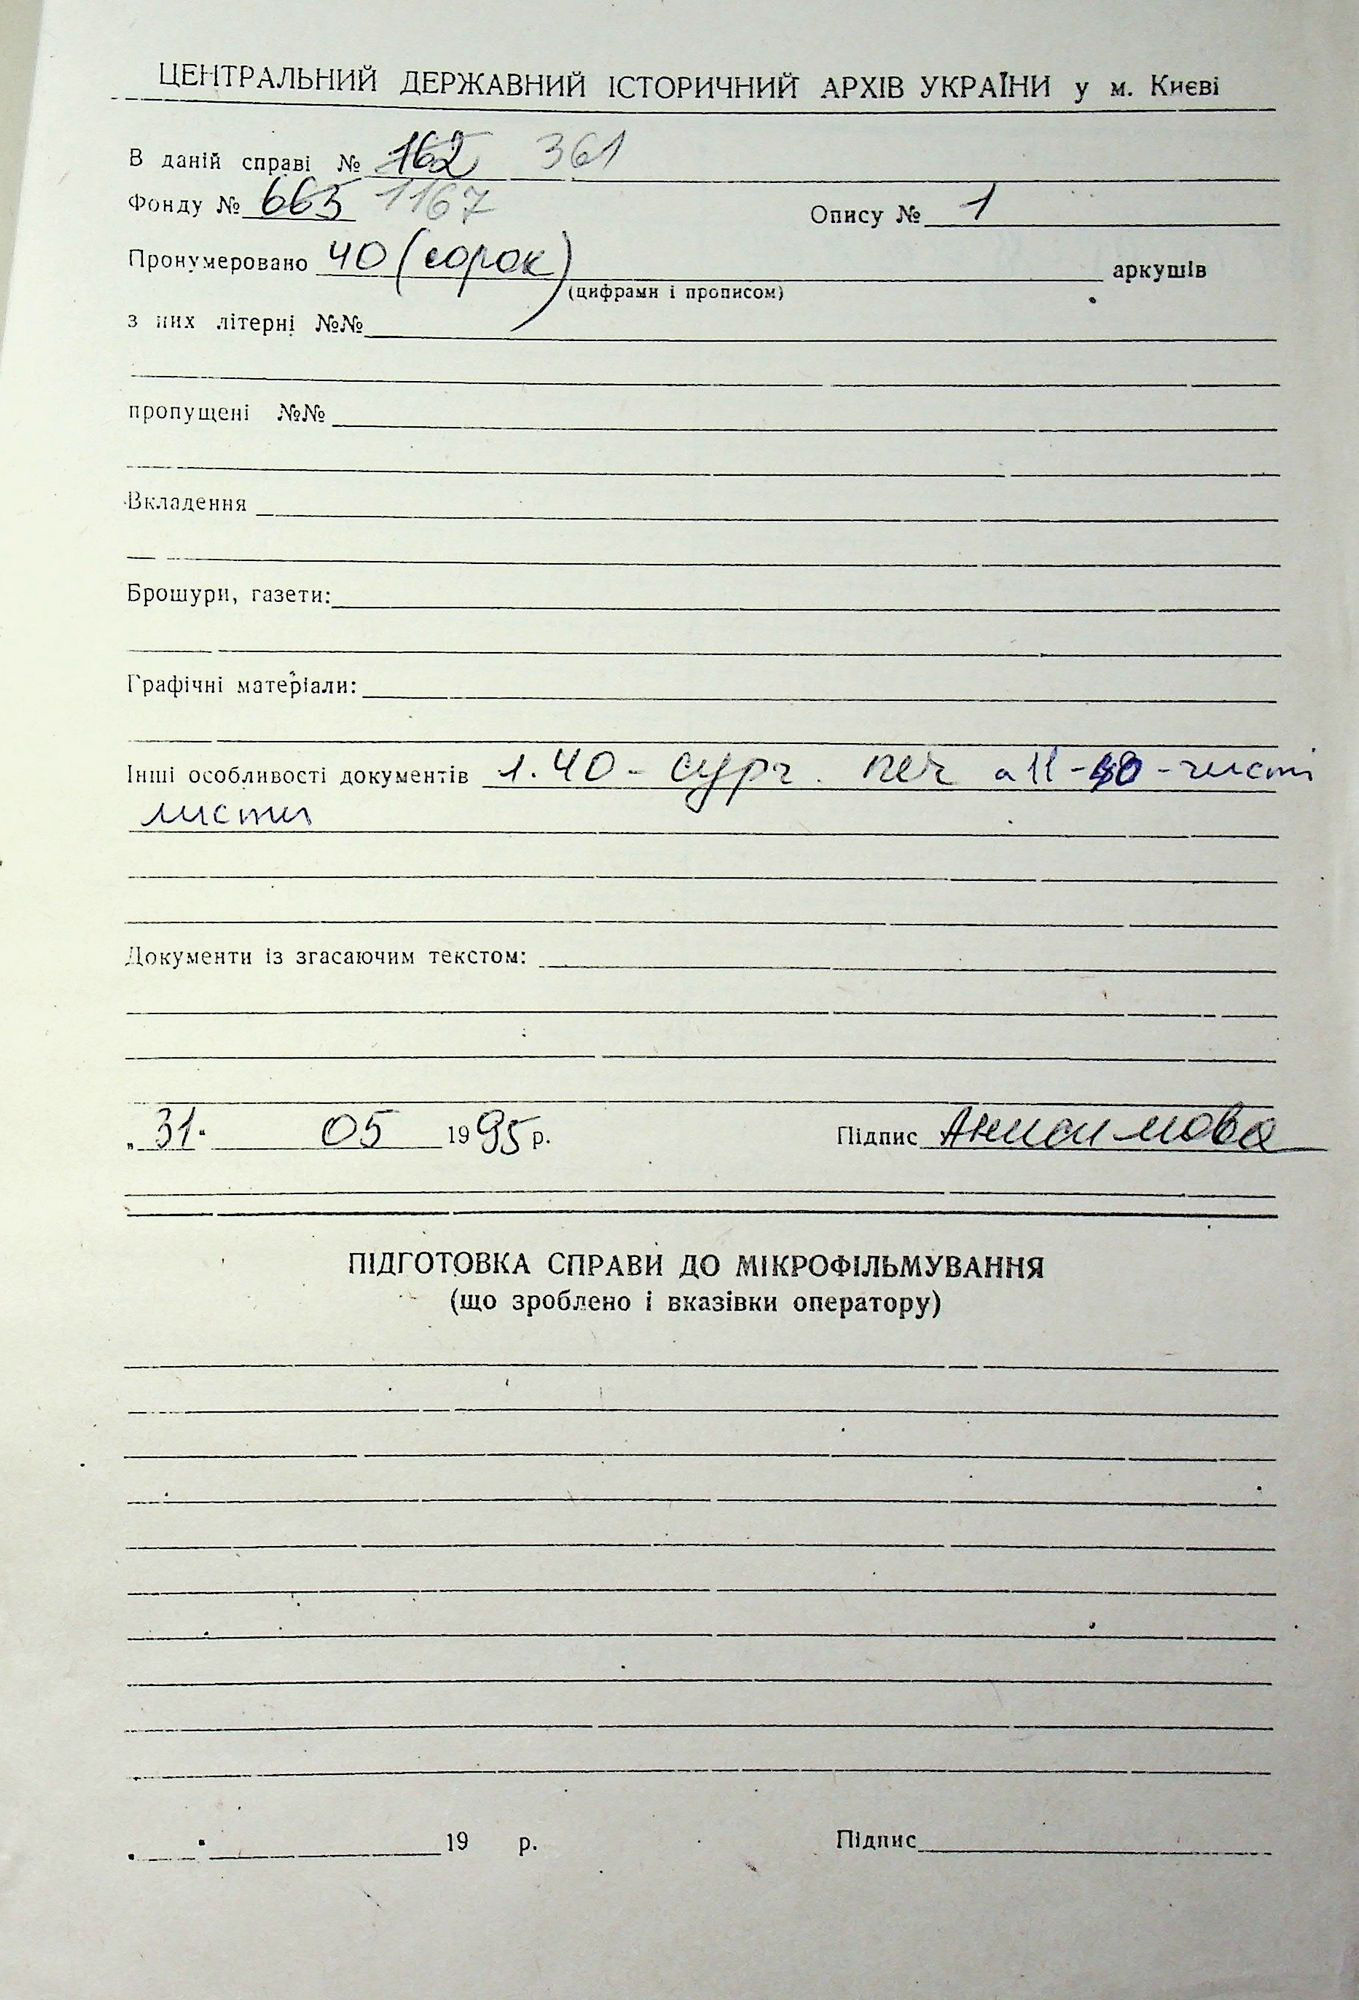 ЦЕНТРАЛЬНИЙ ДЕРЖАВНИЙ ІСТОРИЧНИЙ АРХІВ УКРАЇНИ у м. Києві
В даній справі № 162 361
Фонду № 663 1167 Опису № 1
Пронумеровано 40 (сорок) аркушів
(цифрами і прописом)
з них літерні №№
пропущені №№
Вкладення
Брошури, газети:
Графічні матеріали:
Інші особливості документів 1.40 - сург. печ а 11-40 - чисті
листи
Документи із згасаючим текстом:
„31" 05 1995 р. Підпис Анисимова
ПІДГОТОВКА СПРАВИ ДО МІКРОФІЛЬМУВАННЯ
(що зроблено і вказівки оператору)
19 р. Підпис